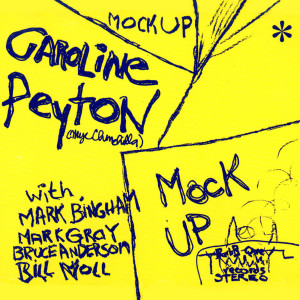 MOCK UP
CAROLINE
PEYTON
with
MARK BINGHAM
MARK GRAY
BRUCE ANDERSON
BILL NOLL
MOCK
UP
records
STEREO